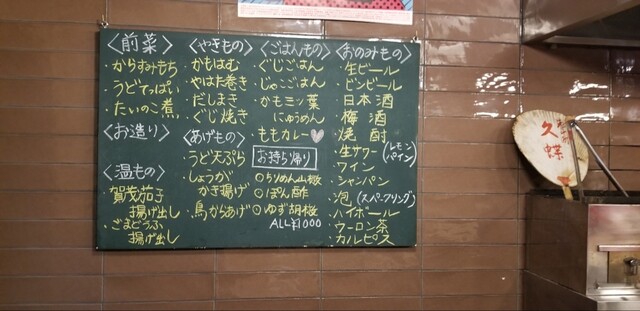 〈前菜〉
・からすみもち
・うどてっぱい
・たいのこ煮
〈お造り〉
〈温もの〉
・賀茂茄子
揚げ出し
・ごまどうふ
揚げ出し
〈やきもの〉
・かもはむ
・やはた巻き
・だしまき
・ぐじ焼き
〈あげもの〉
・うど天ぷら
・しょうが
かき揚げ
・鳥からあげ
〈ごはんもの〉
・ぐじごはん
・じゃこごはん
・かも三ッ葉
にゅうめん
・ももカレー
お持ち帰り
○ちりめん山椒
○ぽん酢
○ゆず胡椒
ALL¥1000
〈おのみもの〉
・生ビール
・ビンビール
・日本酒
・梅酒
・焼酎
・生サワー(レモン
パイン)
・ワイン
・シャンパン
・泡(スパークリング)
・ハイボール
・ウーロン茶
・カルピス
久蝶